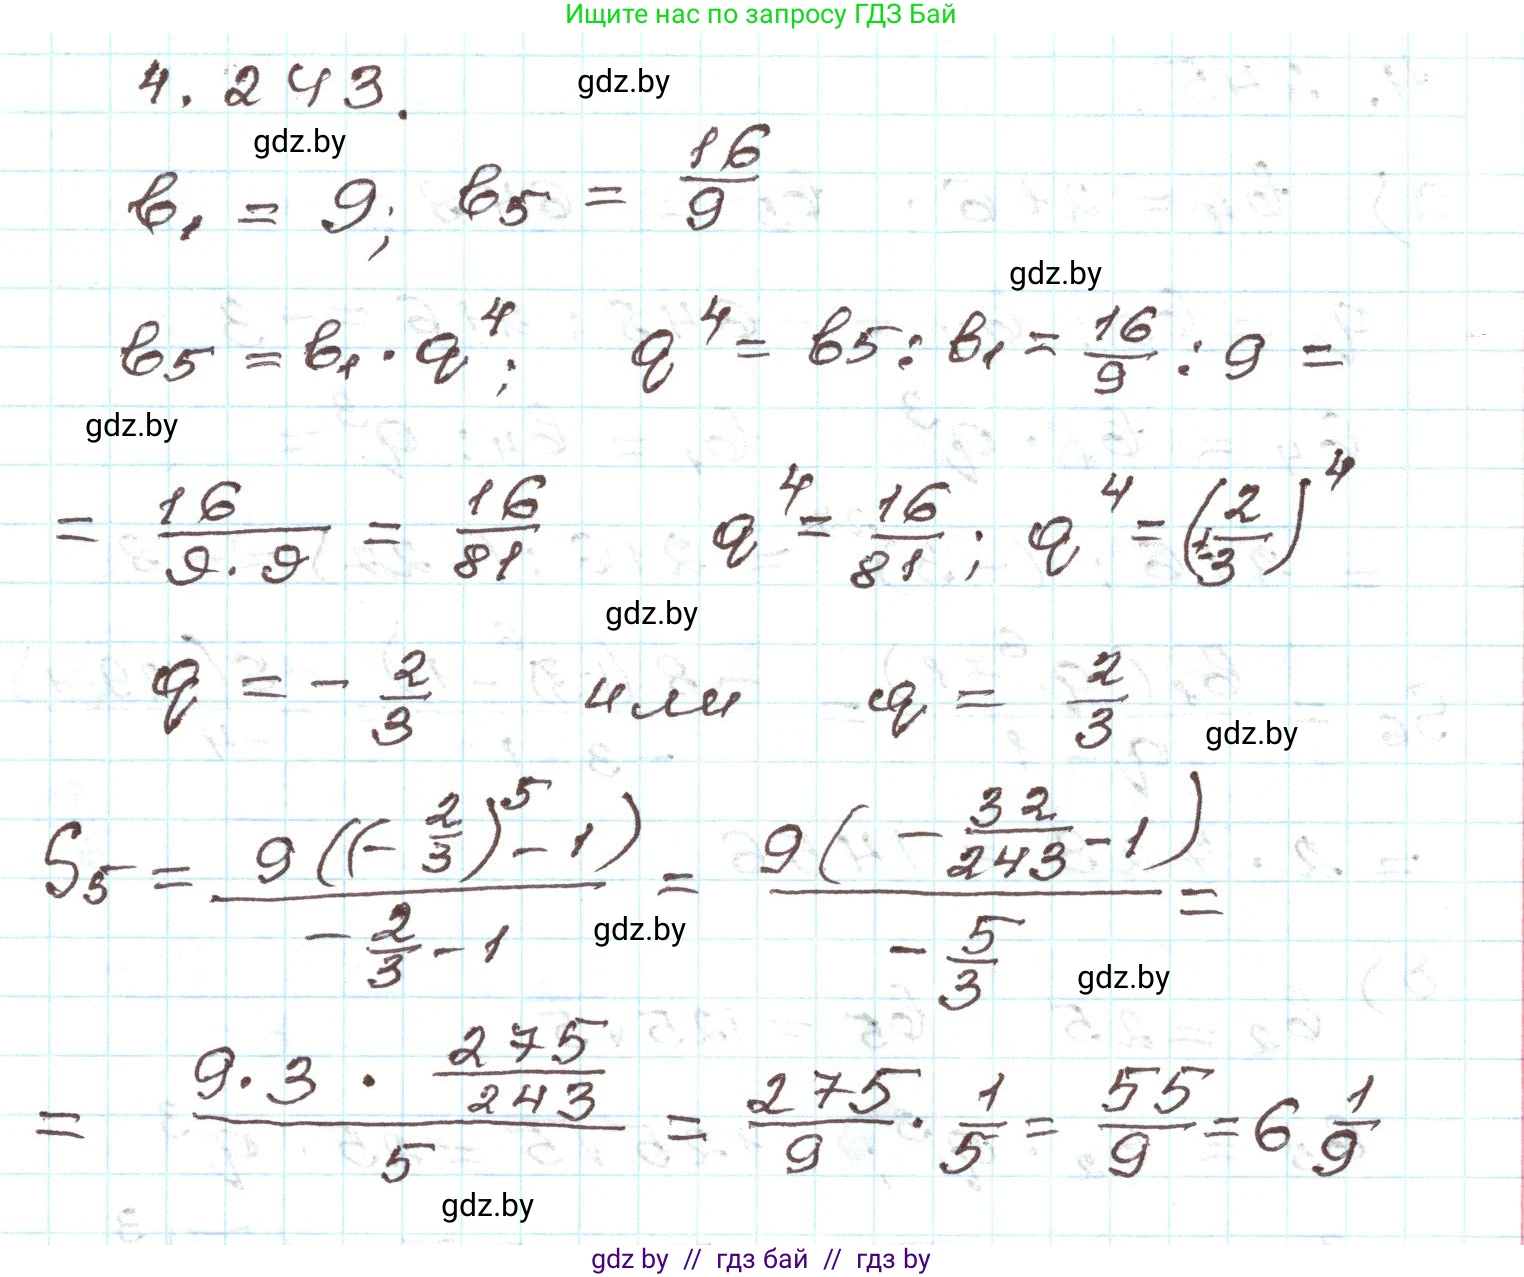 Ищите нас по запросу ГДЗ Бай
4.243.
gdz.by
gdz.by
b₁ = 9; b₅ = 16/9
gdz.by
b₅ = b₁ · q⁴; q⁴ = b₅ : b₁ = 16/9 : 9 =
gdz.by
= 16/(9·9) = 16/81 q⁴ = 16/81; q⁴ = (±2/3)⁴
gdz.by
q = - 2/3 или q = 2/3
gdz.by
S₅ = 9((-2/3)⁵ - 1)/(-2/3 - 1) = 9(-32/243 - 1)/(-5/3) =
gdz.by
gdz.by
= (9·3 · 275/243)/5 = 275/9 · 1/5 = 55/9 = 6 1/9
gdz.by
gdz by // гдз бай // гдз by